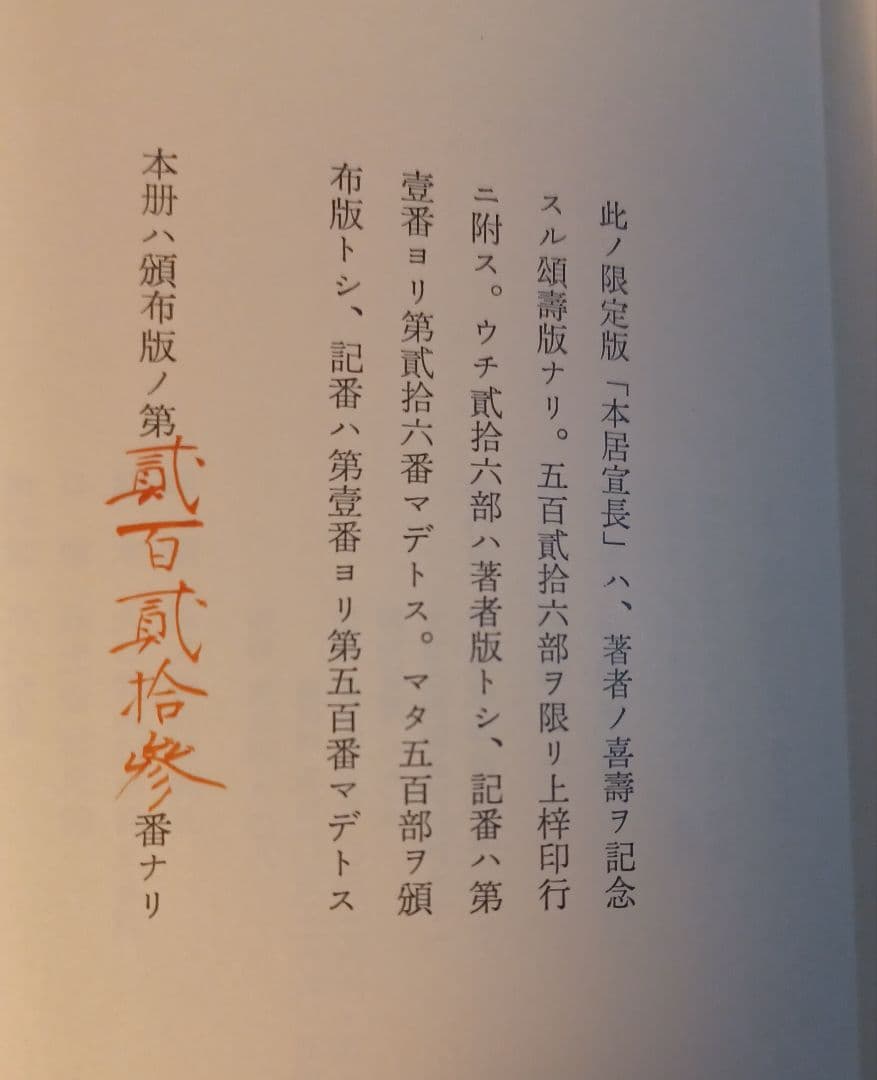 此ノ限定版「本居宣長」ハ、著者ノ喜壽ヲ記念
スル頌壽版ナリ。五百貳拾六部ヲ限リ上梓印行
ニ附ス。ウチ貳拾六部ハ著者版トシ、記番ハ第
壹番ヨリ第貳拾六番マデトス。マタ五百部ヲ頒
布版トシ、記番ハ第壹番ヨリ第五百番マデトス
本册ハ頒布版ノ第貳百貳拾參番ナリ